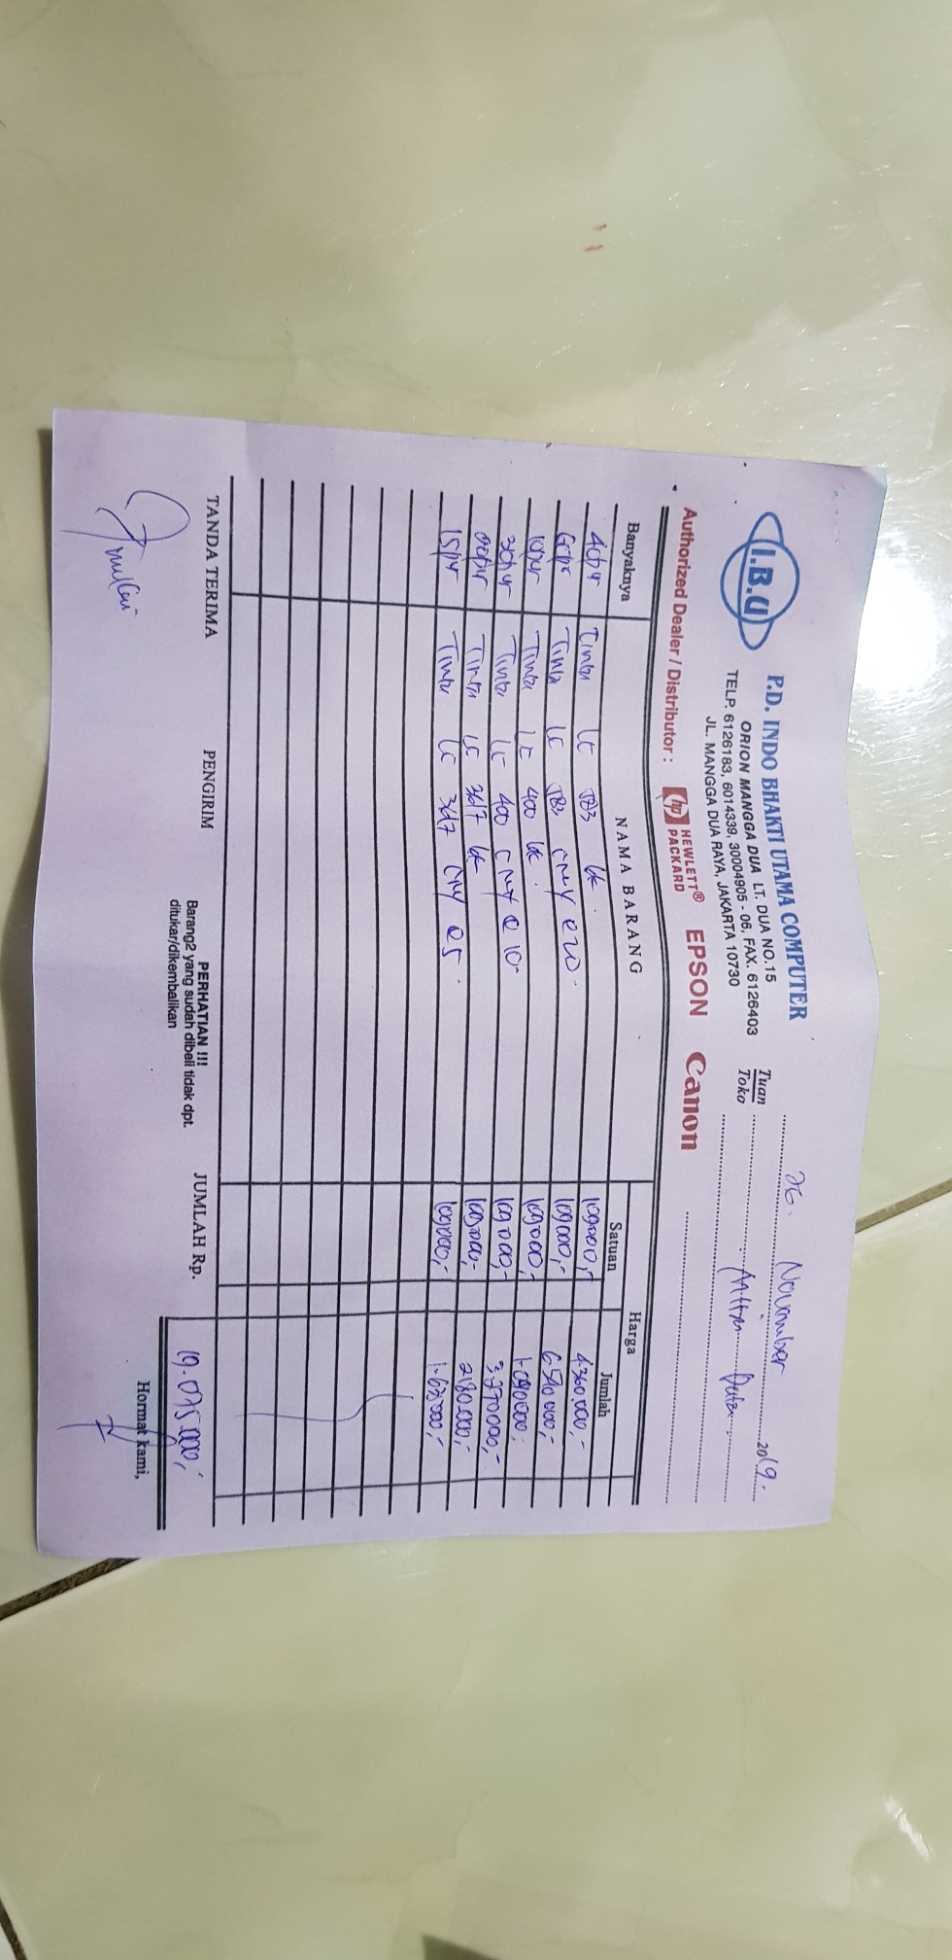 I.B.U
P.D. INDO BHAKTI UTAMA COMPUTER
ORION MANGGA DUA LT. DUA NO.15
TELP. 6126183, 6014339, 30004905 - 06, FAX. 6126403
JL. MANGGA DUA RAYA, JAKARTA 10730
26 November 2019.
Tuan
Toko
Authorized Dealer / Distributor : hp HEWLETT® PACKARD EPSON Canon
Banyaknya NAMA BARANG Harga
Satuan Jumlah
40pr Tinta LC BK. 109.000,- 4.360.000,-
60pr Tinta LC CMY @ 20. 109.000,- 6.540.000,-
10pr Tinta LC 400 BK. 109.000,- 1.090.000,-
30pr Tinta LC 400 CMY @ 10. 109.000,- 3.270.000,-
20pr Tinta LC 3617 BK 109.000,- 2.180.000,-
15pr Tinta LC 3617 CMY @ 5. 109.000,- 1.635.000,-
TANDA TERIMA PENGIRIM
PERHATIAN !!!
Barang2 yang sudah dibeli tidak dpt.
ditukar/dikembalikan
JUMLAH Rp. 19.075.000,-
Hormat kami,